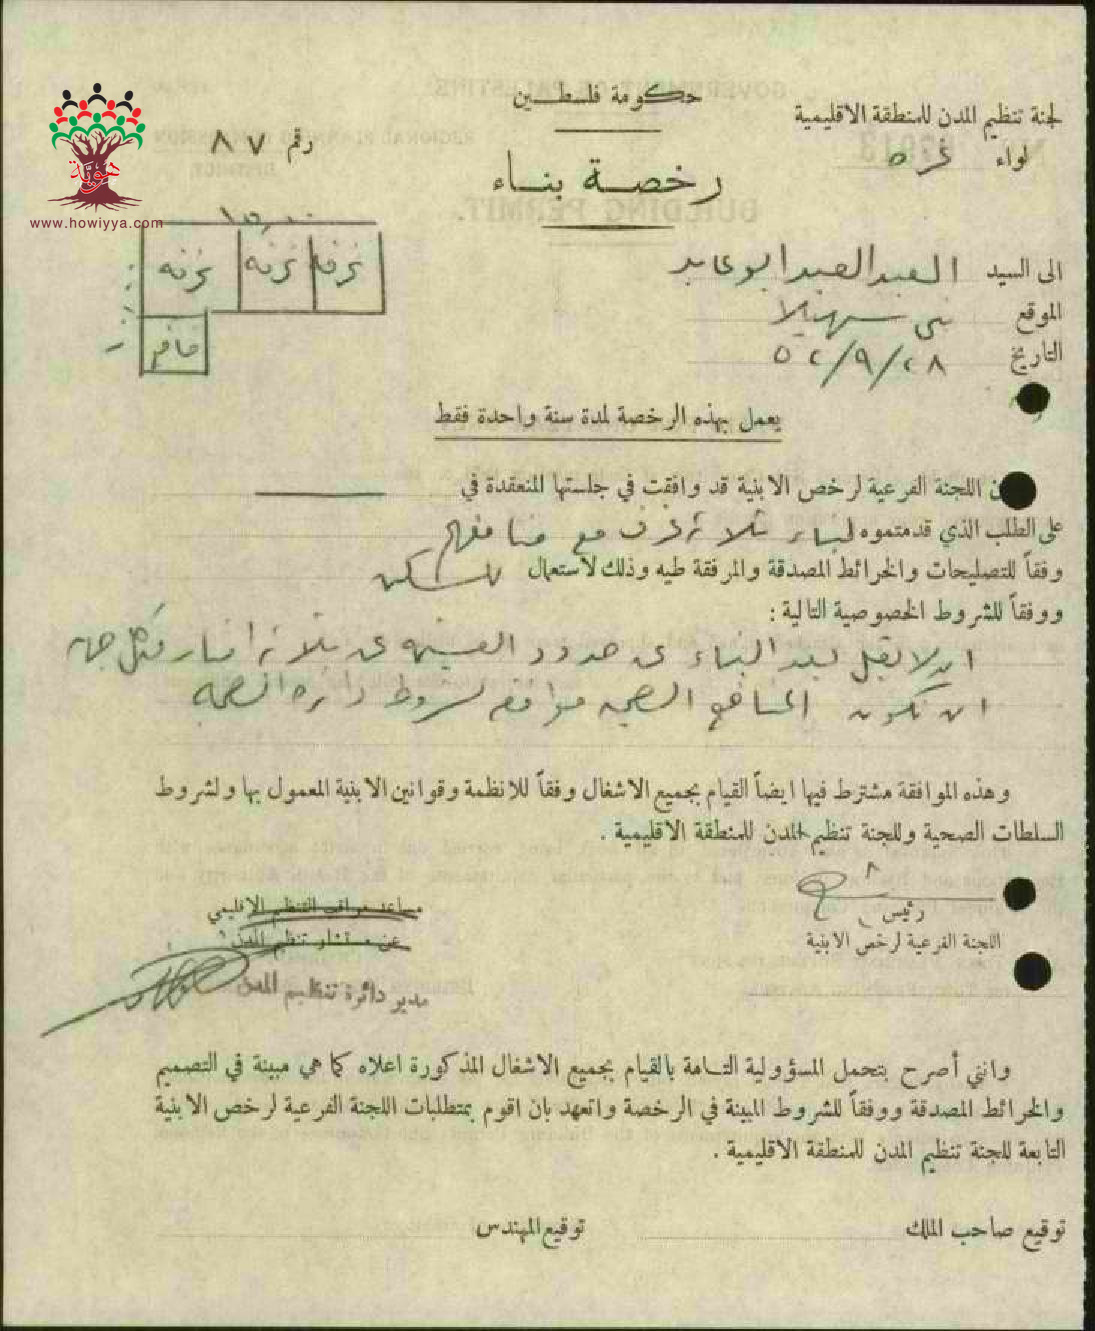 حكومة فلسطين
لجنة تنظيم المدن للمنطقة الاقليمية
لواء غزه
رقم ٨٧
رخصة بناء
هوية
www.howiyya.com
غرفه غرفه غرفه
الى السيد العبد العبد ابو عابد
الموقع بني سهيلا
التاريخ ٢٨/٩/٥٢
يعمل بهذه الرخصة لمدة سنة واحدة فقط
ن اللجنة الفرعية لرخص الابنية قد وافقت في جلستها المنعقدة في
على الطلب الذي قدمتموه لبناء ثلاثة غرف مع منافعهم
وفقاً للتصليحات والخرائط المصدقة والمرفقة طيه وذلك لاستعمال للسكن
ووفقاً للشروط الخصوصية التالية :
ان لا يقل بعد البناء عن حدود القسيمه عن ثلاثة امتار من كل جهه
ان تكون المنافع الصحيه موافقه لشروط دائرة الصحه
وهذه الموافقة مشترط فيها ايضاً القيام بجميع الاشغال وفقاً للانظمة وقوانين الابنية المعمول بها ولشروط
السلطات الصحية وللجنة تنظيم المدن للمنطقة الاقليمية .
رئيس
اللجنة الفرعية لرخص الابنية
مساعد مراقب التنظيم الاقليمي
عن مستشار تنظيم المدن
مدير دائرة تنظيم المدن
وانني أصرح بتحمل المسؤولية التامة بالقيام بجميع الاشغال المذكورة اعلاه كما هي مبينة في التصميم
والخرائط المصدقة ووفقاً للشروط المبينة في الرخصة واتعهد بان اقوم بمتطلبات اللجنة الفرعية لرخص الابنية
التابعة للجنة تنظيم المدن للمنطقة الاقليمية .
توقيع صاحب الملك
توقيع المهندس